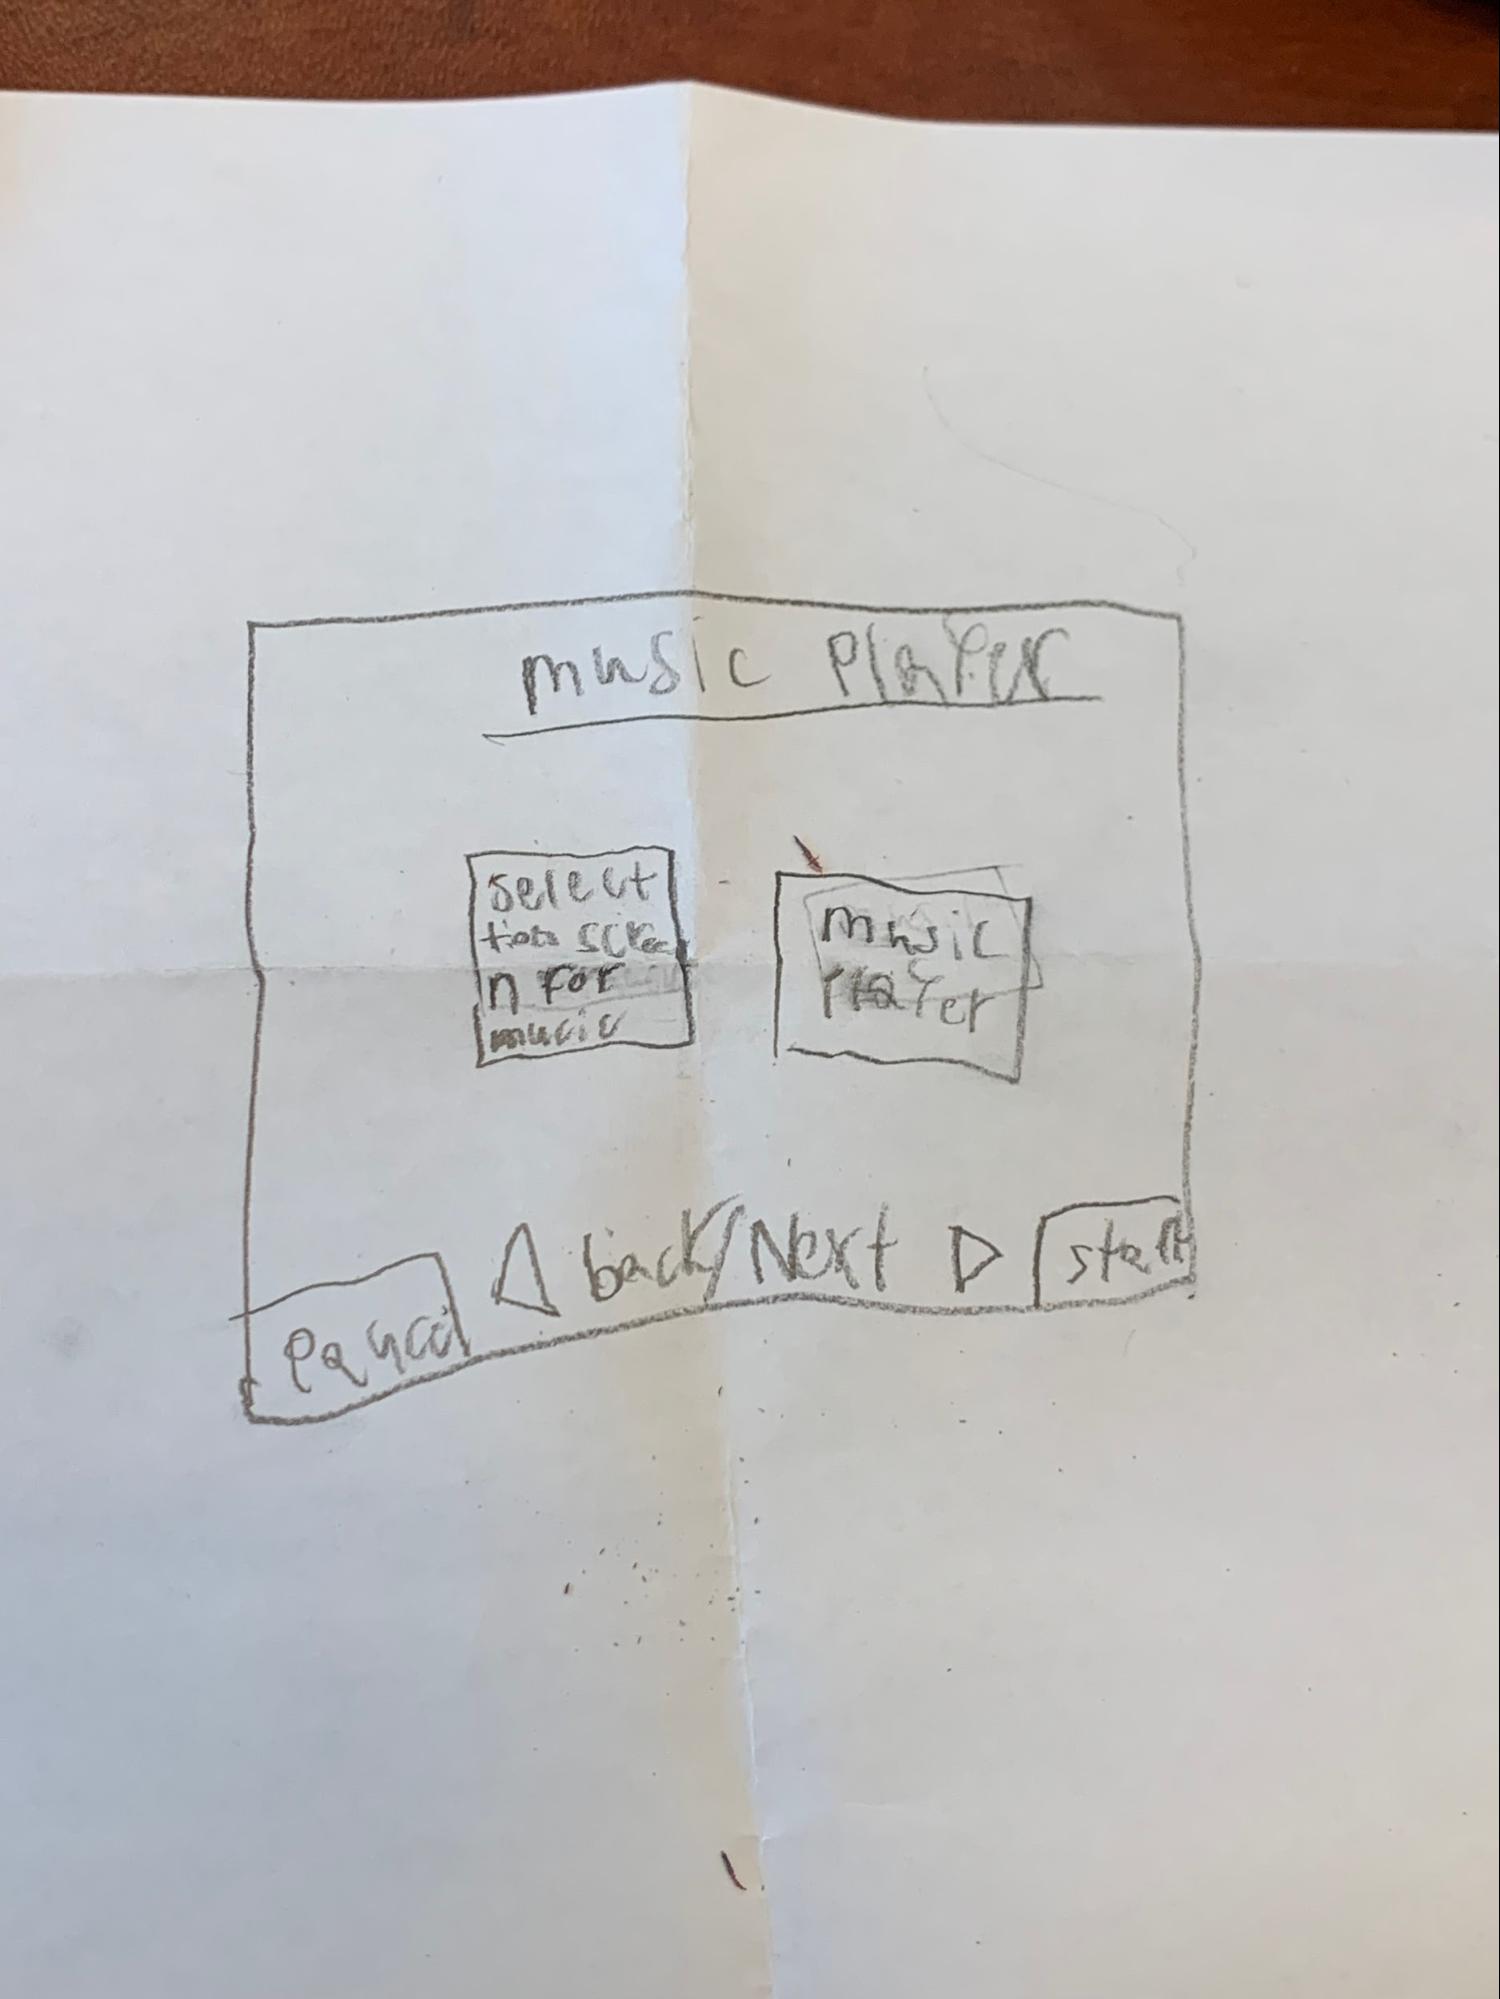 music Player
select
tion scree
n For
music
music
Player
back/Next
start